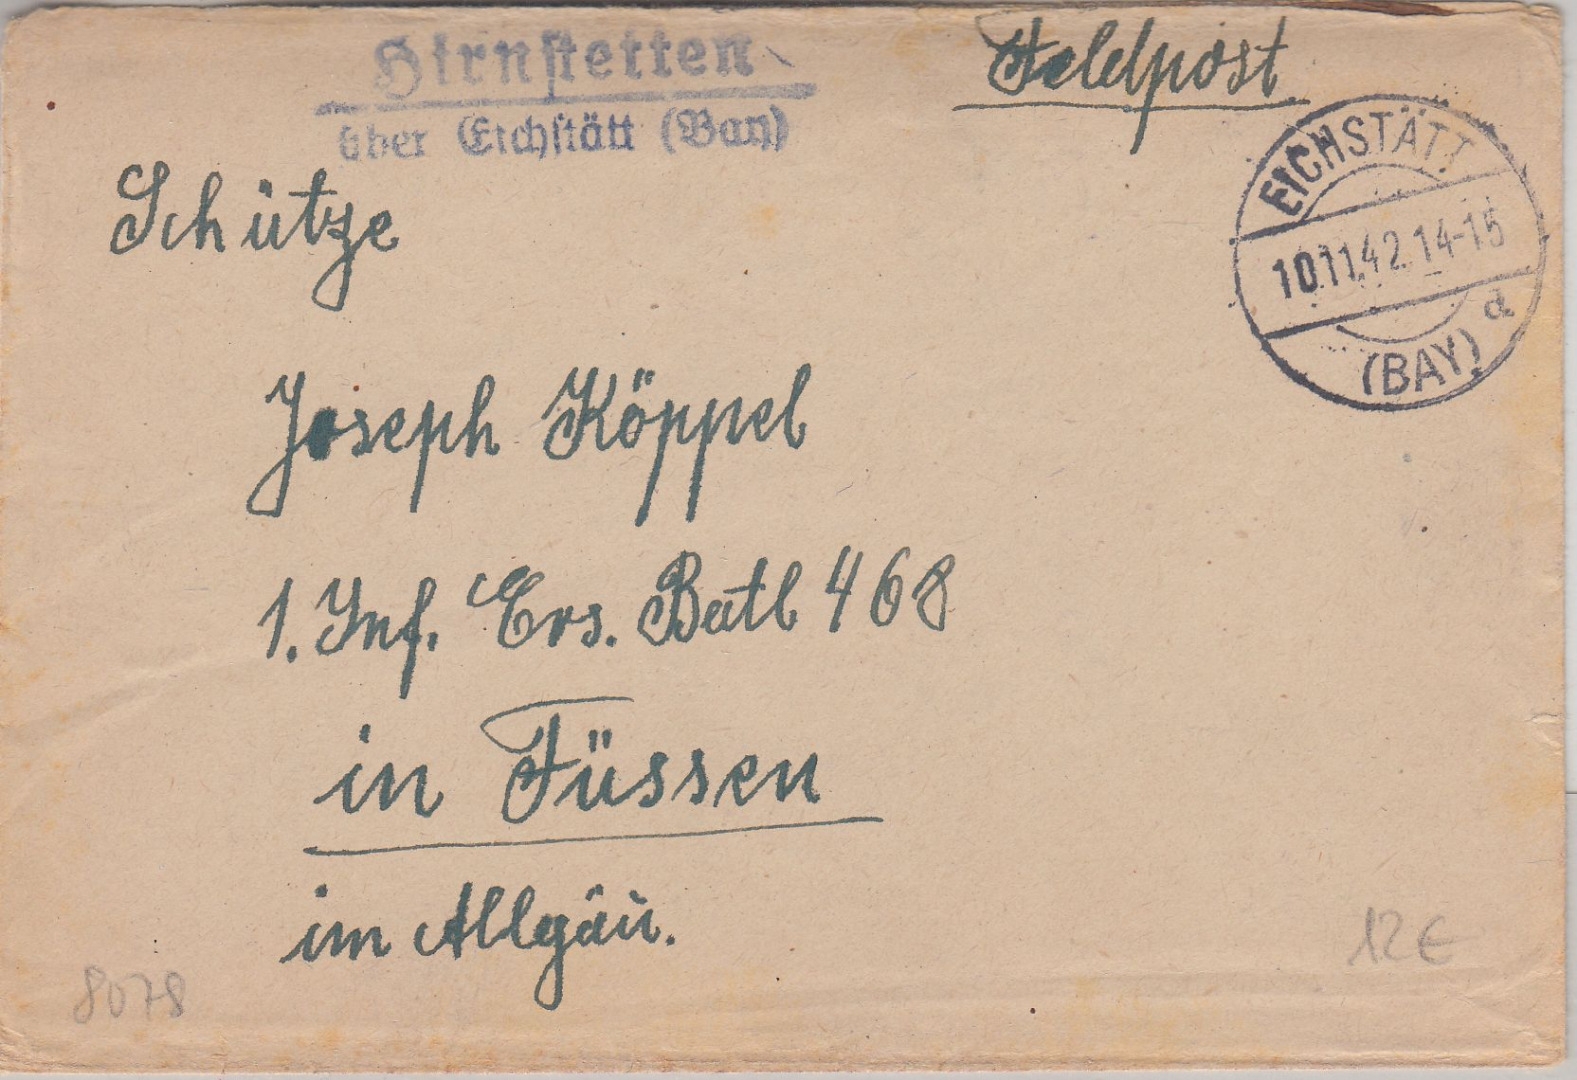 Hirnstetten
über Eichstätt (Bay)
Feldpost
EICHSTÄTT
10.11.42.14-15
d
(BAY)
Schütze
Joseph Köppel
1. Inf. Ers. Batl 468
in Füssen
im Allgäu.
12€
8078